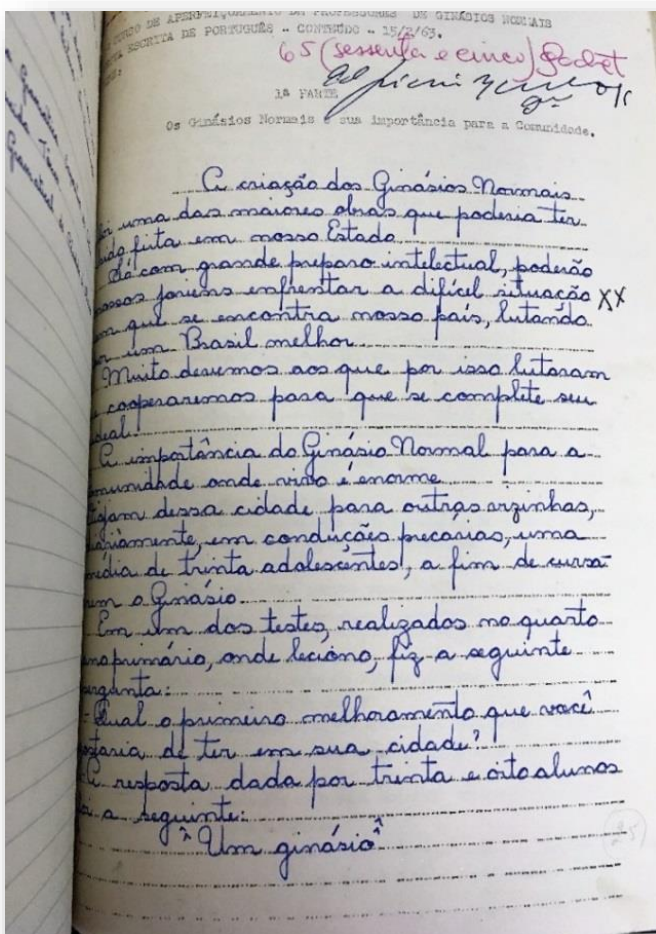 CURSO DE APERFEIÇOAMENTO DE PROFESSORES DE GINÁSIOS NORMAIS
ESCRITA DE PORTUGUÊS - CONTEÚDO - 15/2/63.
65 (sessenta e cinco)
1ª PARTE
Os Ginásios Normais e sua importância para a Comunidade.
A criação dos Ginásios Normais
foi uma das maiores obras que poderia ter
sido feita em nosso Estado.
Só com grande preparo intelectual, poderão
nossos jovens enfrentar a difícil situação XX
em que se encontra nosso país, lutando
por um Brasil melhor.
Muito devemos aos que por isso lutaram
e cooperaremos para que se complete seu
ideal.
A importância do Ginásio Normal para a
comunidade onde vivo é enorme.
Viajam dessa cidade para outras vizinhas,
diàriamente, em conduções precarias, uma
média de trinta adolescentes, a fim de cursa-
rem o Ginásio.
Em um dos testes, realizados no quarto
ano primário, onde leciono, fiz a seguinte
pergunta:
- Qual o primeiro melhoramento que você
gostaria de ter em sua cidade?
A resposta dada por trinta e oito alunos
foi a seguinte:
"Um ginásio"